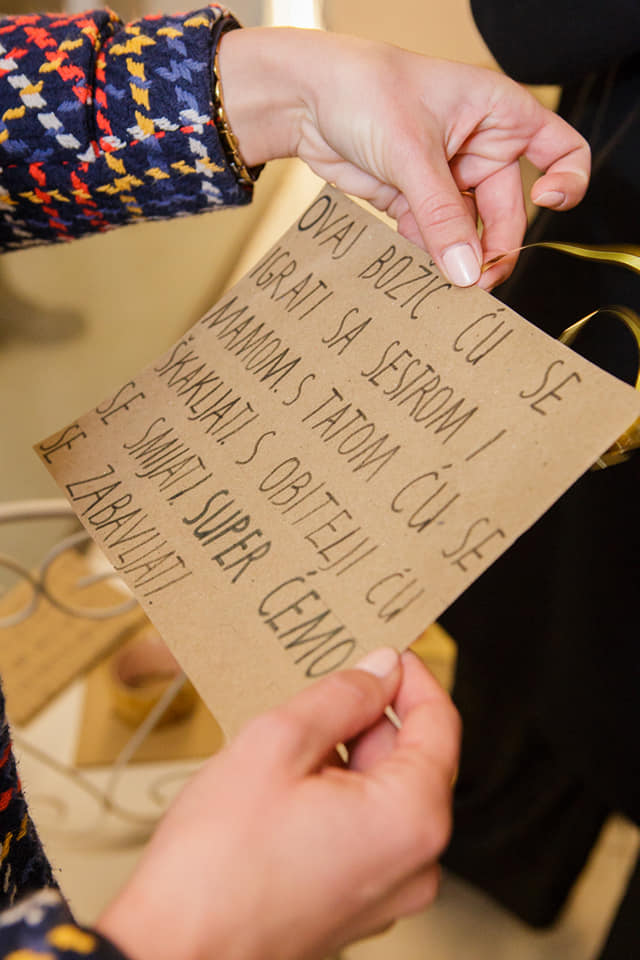 OVAJ BOŽIĆ ĆU SE
IGRATI SA SESTROM I
MAMOM. S TATOM ĆU SE
ŠKAKLJATI. S OBITELJI ĆU
SE SMIJATI. SUPER ĆEMO
SE ZABAVLJATI.